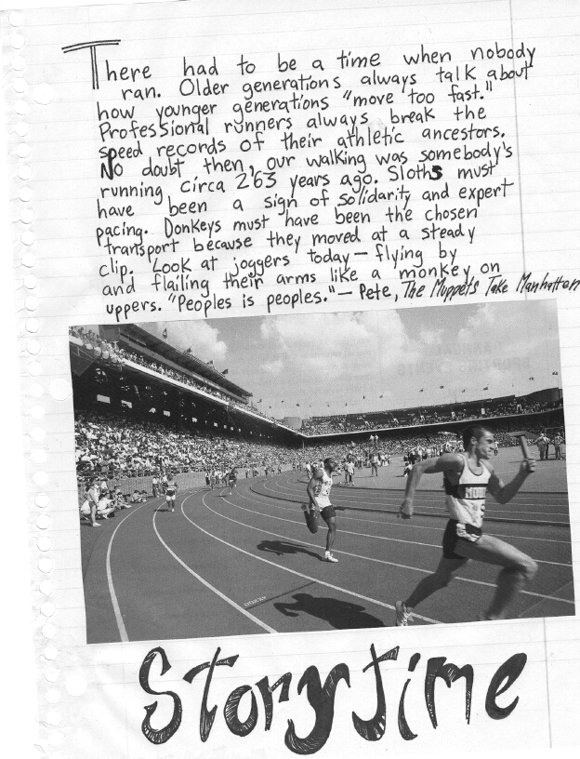 There had to be a time when nobody
ran. Older generations always talk about
how younger generations "move too fast."
Professional runners always break the
speed records of their athletic ancestors.
No doubt then, our walking was somebody's
running circa 263 years ago. Sloths must
have been a sign of solidarity and expert
pacing. Donkeys must have been the chosen
transport because they moved at a steady
clip. Look at joggers today — flying by
and flailing their arms like a monkey on
uppers. "Peoples is peoples." — Pete, The Muppets Take Manhattan
Storytime